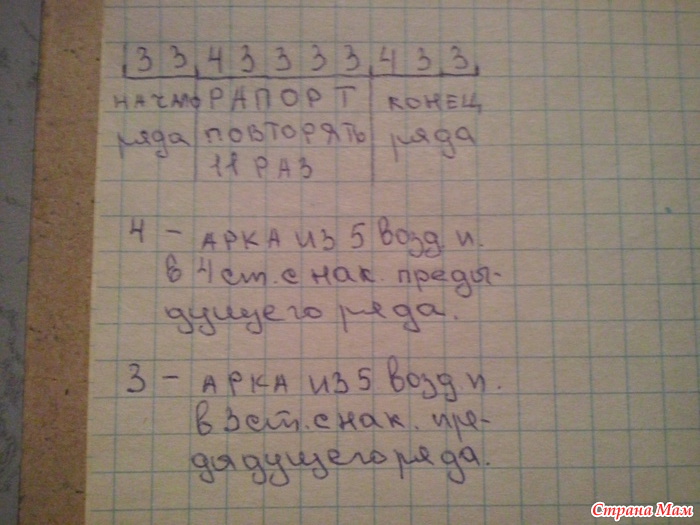 3 3 4 3 3 3 3 4 3 3
НАЧАЛО РАПОРТ КОНЕЦ
ряда ПОВТОРЯТЬ ряда
11 РАЗ
4 - АРКА ИЗ 5 возд п.
в 4 ст. с нак. преды-
дущего ряда.
3 - АРКА ИЗ 5 возд п.
в 3 ст. с нак. пре-
дыдущего ряда.
Страна Мам